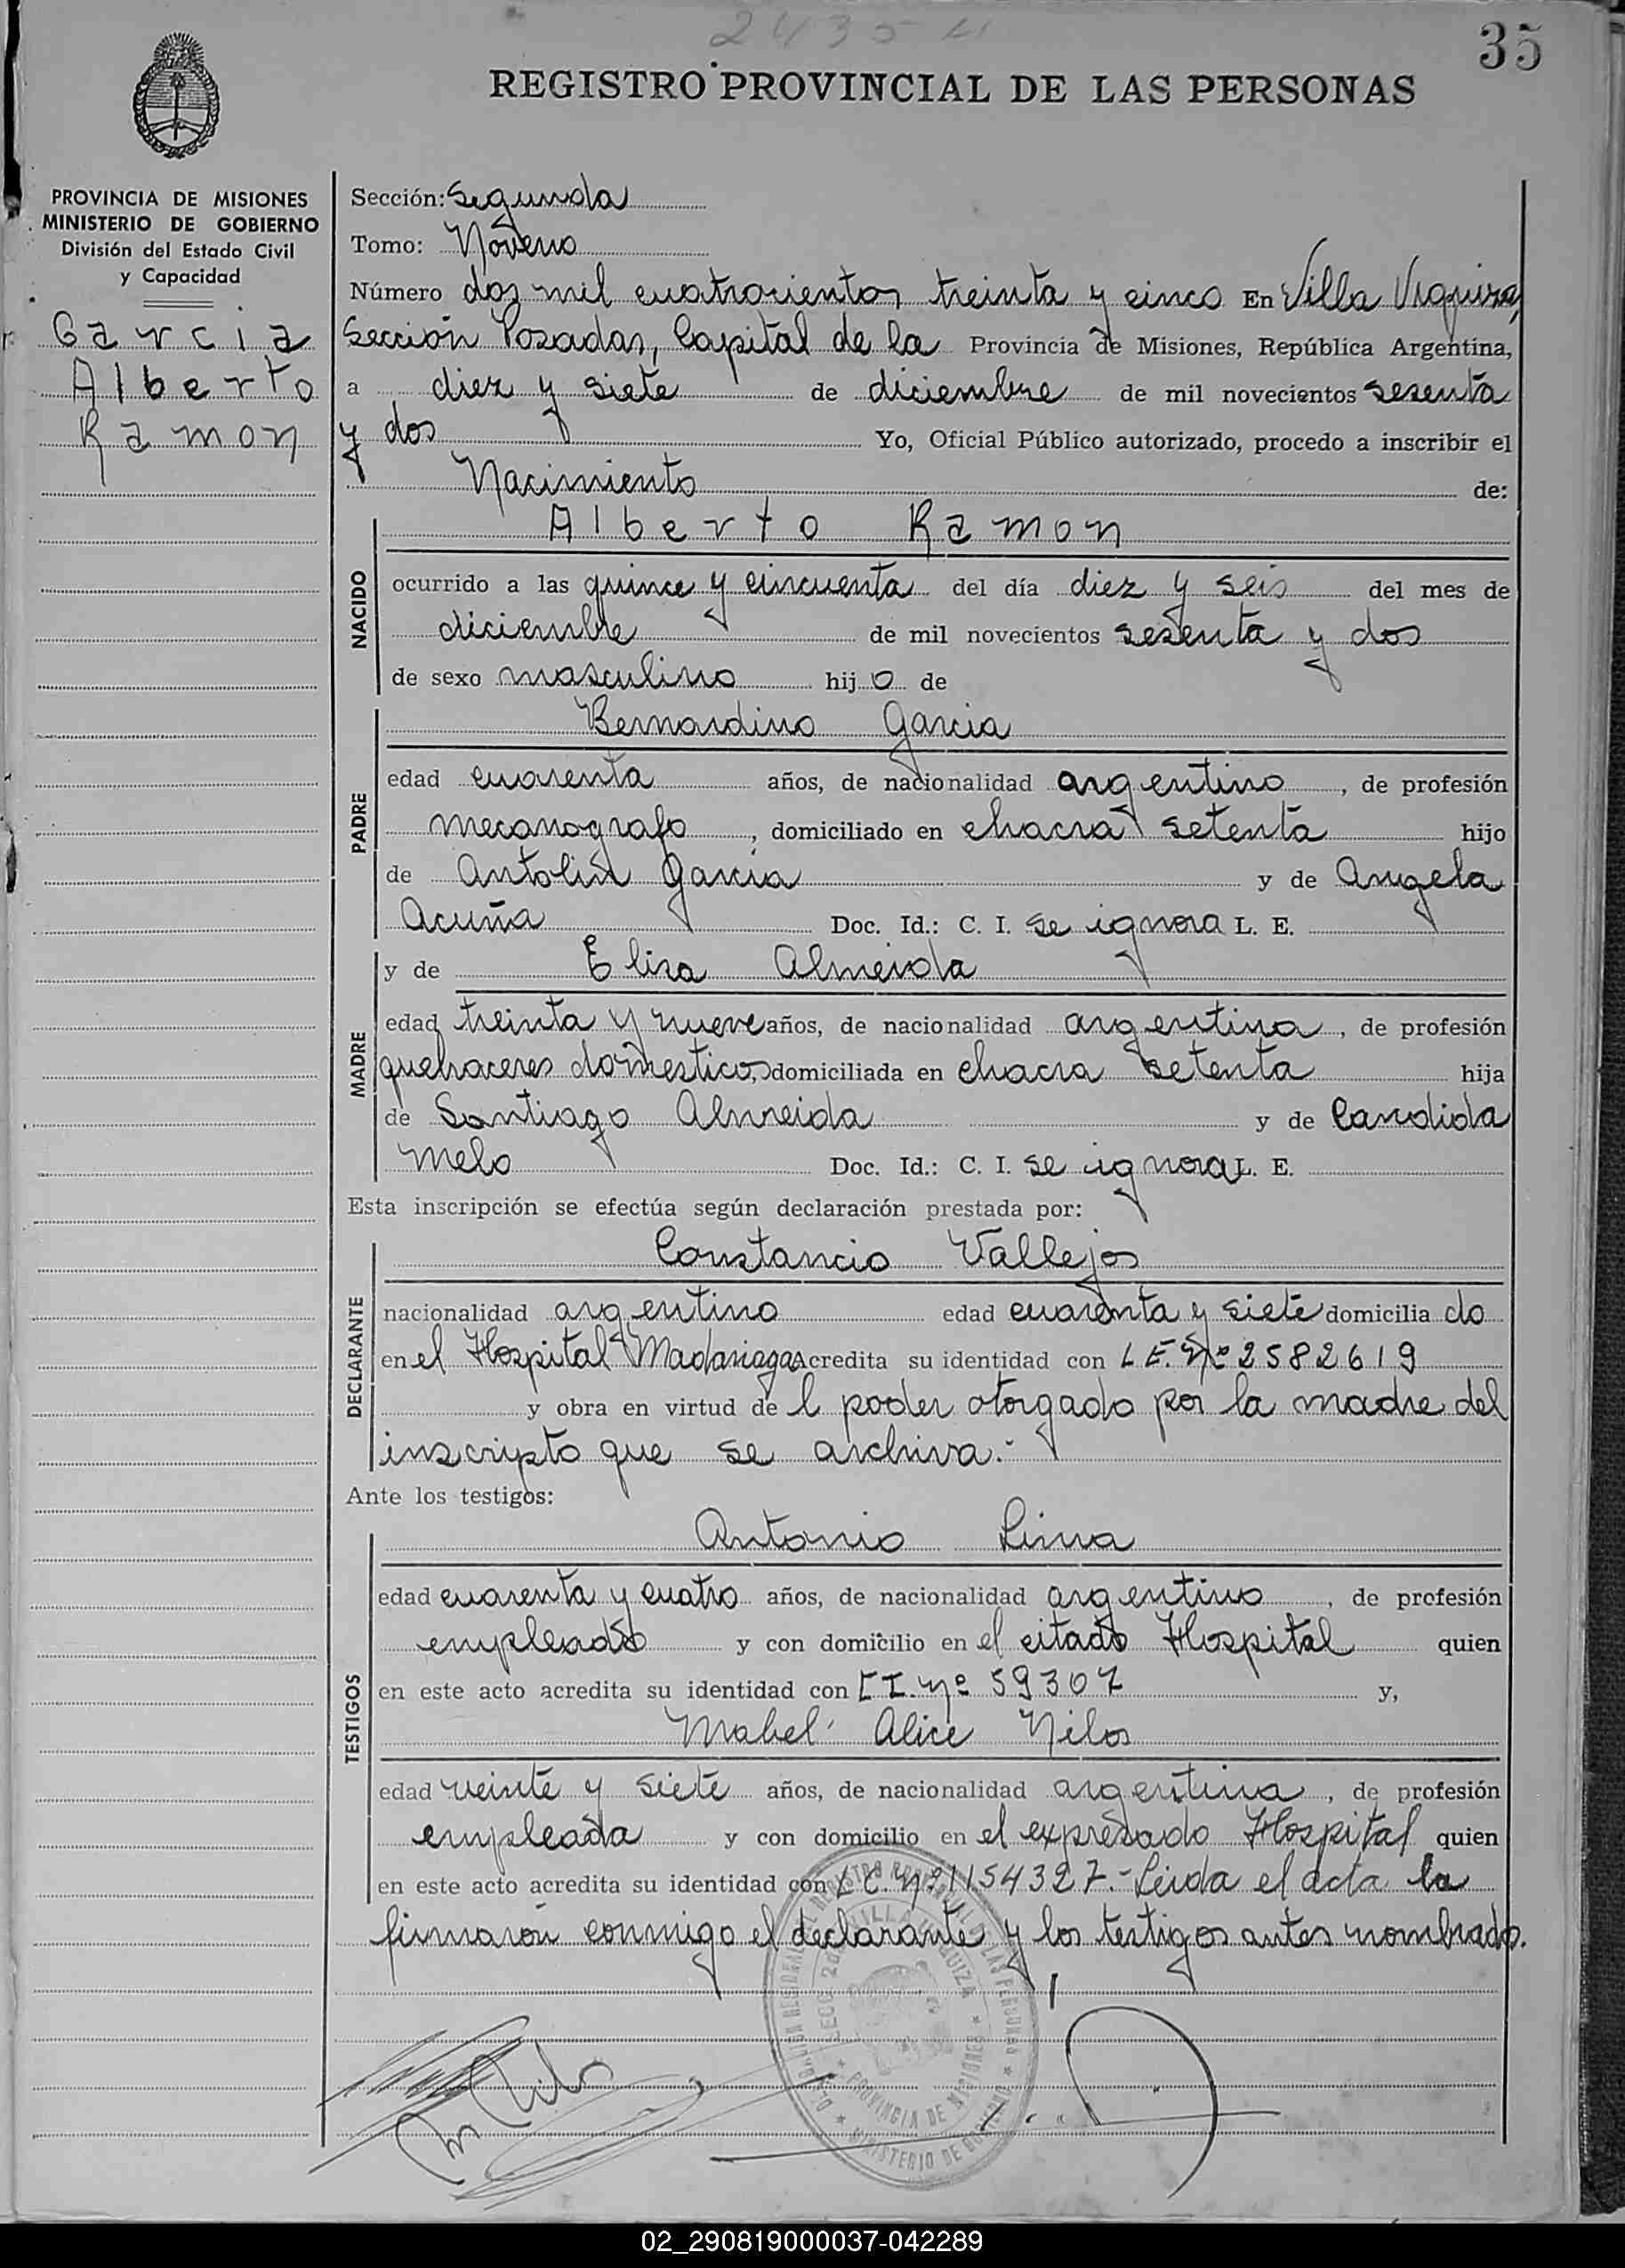 2435
35
REGISTRO PROVINCIAL DE LAS PERSONAS
PROVINCIA DE MISIONES
MINISTERIO DE GOBIERNO
División del Estado Civil
y Capacidad
Garcia
Alberto
Ramon
Sección: Segunda
Tomo: Noveno
Número dos mil cuatrocientos treinta y cinco En Villa Urquiza,
Sección Posadas, Capital de la Provincia de Misiones, República Argentina,
a diez y siete de diciembre de mil novecientos sesenta
y dos Yo, Oficial Público autorizado, procedo a inscribir el
Nacimiento de:
NACIDO
Alberto Ramon
ocurrido a las quince y cincuenta del día diez y seis del mes de
diciembre de mil novecientos sesenta y dos
de sexo masculino hijo de
PADRE
Bernardino Garcia
edad cuarenta años, de nacionalidad argentino, de profesión
mecanografo, domiciliado en chacra setenta hijo
de Antolin Garcia y de Angela
Acuña Doc. Id.: C. I. se ignora L. E.
MADRE
y de Elisa Almeida
edad treinta y nueve años, de nacionalidad argentina, de profesión
quehaceres domesticos, domiciliada en chacra setenta hija
de Santiago Almeida y de Candida
Melo Doc. Id.: C. I. se ignora L. E.
Esta inscripción se efectúa según declaración prestada por:
DECLARANTE
Constancio Vallejos
nacionalidad argentino edad cuarenta y siete domiciliado
en el Hospital Madariaga acredita su identidad con L.E. Nº 2582619
y obra en virtud del poder otorgado por la madre del
inscripto que se archiva.-
Ante los testigos:
TESTIGOS
Antonio Lima
edad cuarenta y cuatro años, de nacionalidad argentino, de profesión
empleado y con domicilio en el citado Hospital quien
en este acto acredita su identidad con C.I. Nº 59307 y,
Mabel Alice Nilos
edad veinte y siete años, de nacionalidad argentina, de profesión
empleada y con domicilio en el expresado Hospital quien
en este acto acredita su identidad con L.C. Nº 1154327.- Leida el acta la
firmaron conmigo el declarante y los testigos antes nombrados.
PROVINCIA DE MISIONES
MINISTERIO DE GOBIERNO
02_290819000037-042289